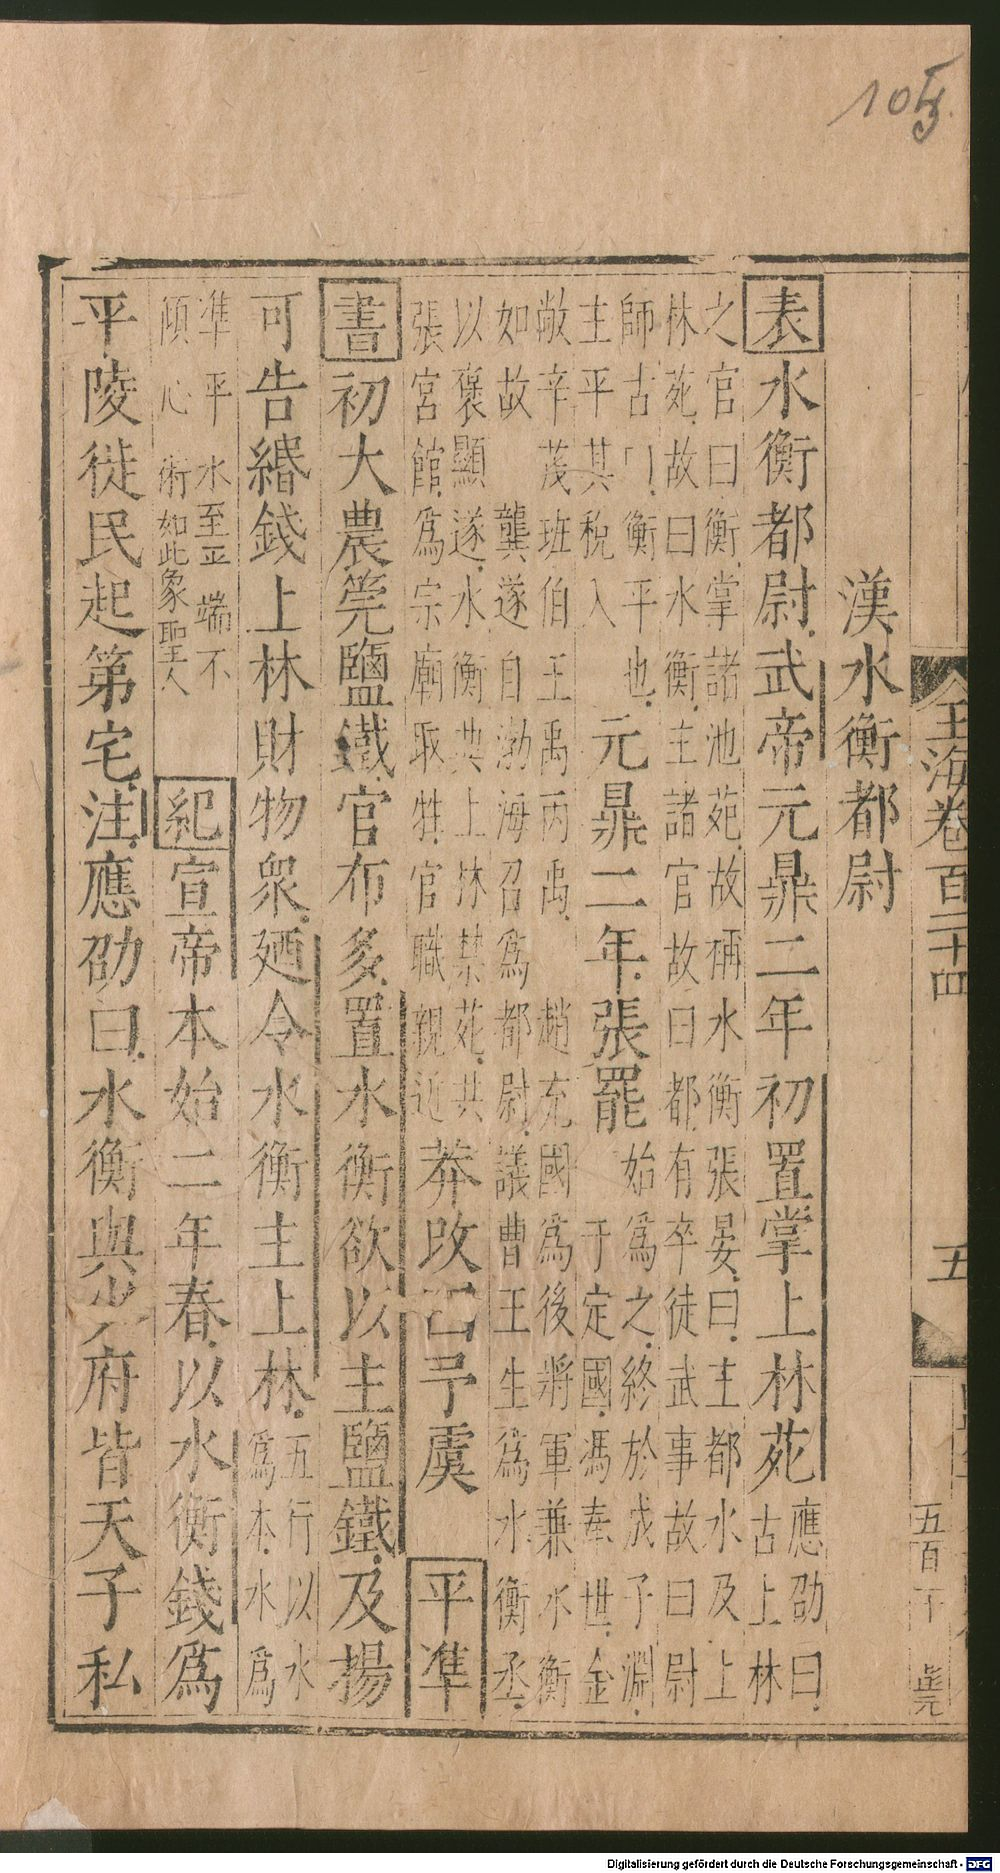 105
玉海卷百二十四
五
五百十
漢水衡都尉
表水衡都尉武帝元鼎二年初置掌上林苑應劭曰
古上林
之官曰衡掌諸池苑故稱水衡張晏曰主都水及上
林苑故曰水衡主諸官故曰都有卒徒武事故曰尉
師古曰衡平也
主平其稅入
元鼎二年張罷
始爲之終於成子淵
于定國馮奉世金
敞辛茂班伯王禹丙禹
趙充國爲後將軍兼水衡
如故
龔遂自渤海召爲都尉議曹王生爲水衡丞
以褒顯遂水衡典上林禁苑共
張宮館爲宗廟取牲官職親近
莽改曰予虞
平準
書初大農筦鹽鐵官布多置水衡欲以主鹽鐵及揚
可告緡錢上林財物衆廼令水衡主上林
五行以水
爲本水爲
準平水至平端不
傾心術如此象聖人
紀宣帝本始二年春以水衡錢爲
平陵徙民起第宅注應劭曰水衡與少府皆天子私
Digitalisierung gefördert durch die Deutsche Forschungsgemeinschaft - DFG